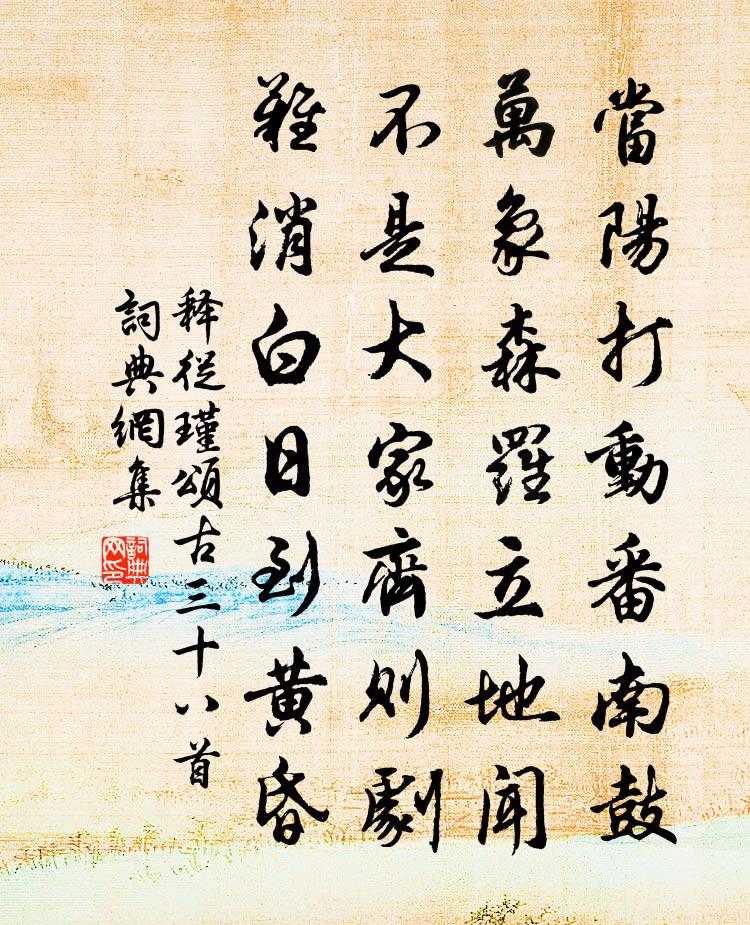 當陽打動番南鼓
萬象森羅立地聞
不是大家齊則劇
難消白日到黃昏
释從瑾頌古三十八首
詞典網集
詞典网印